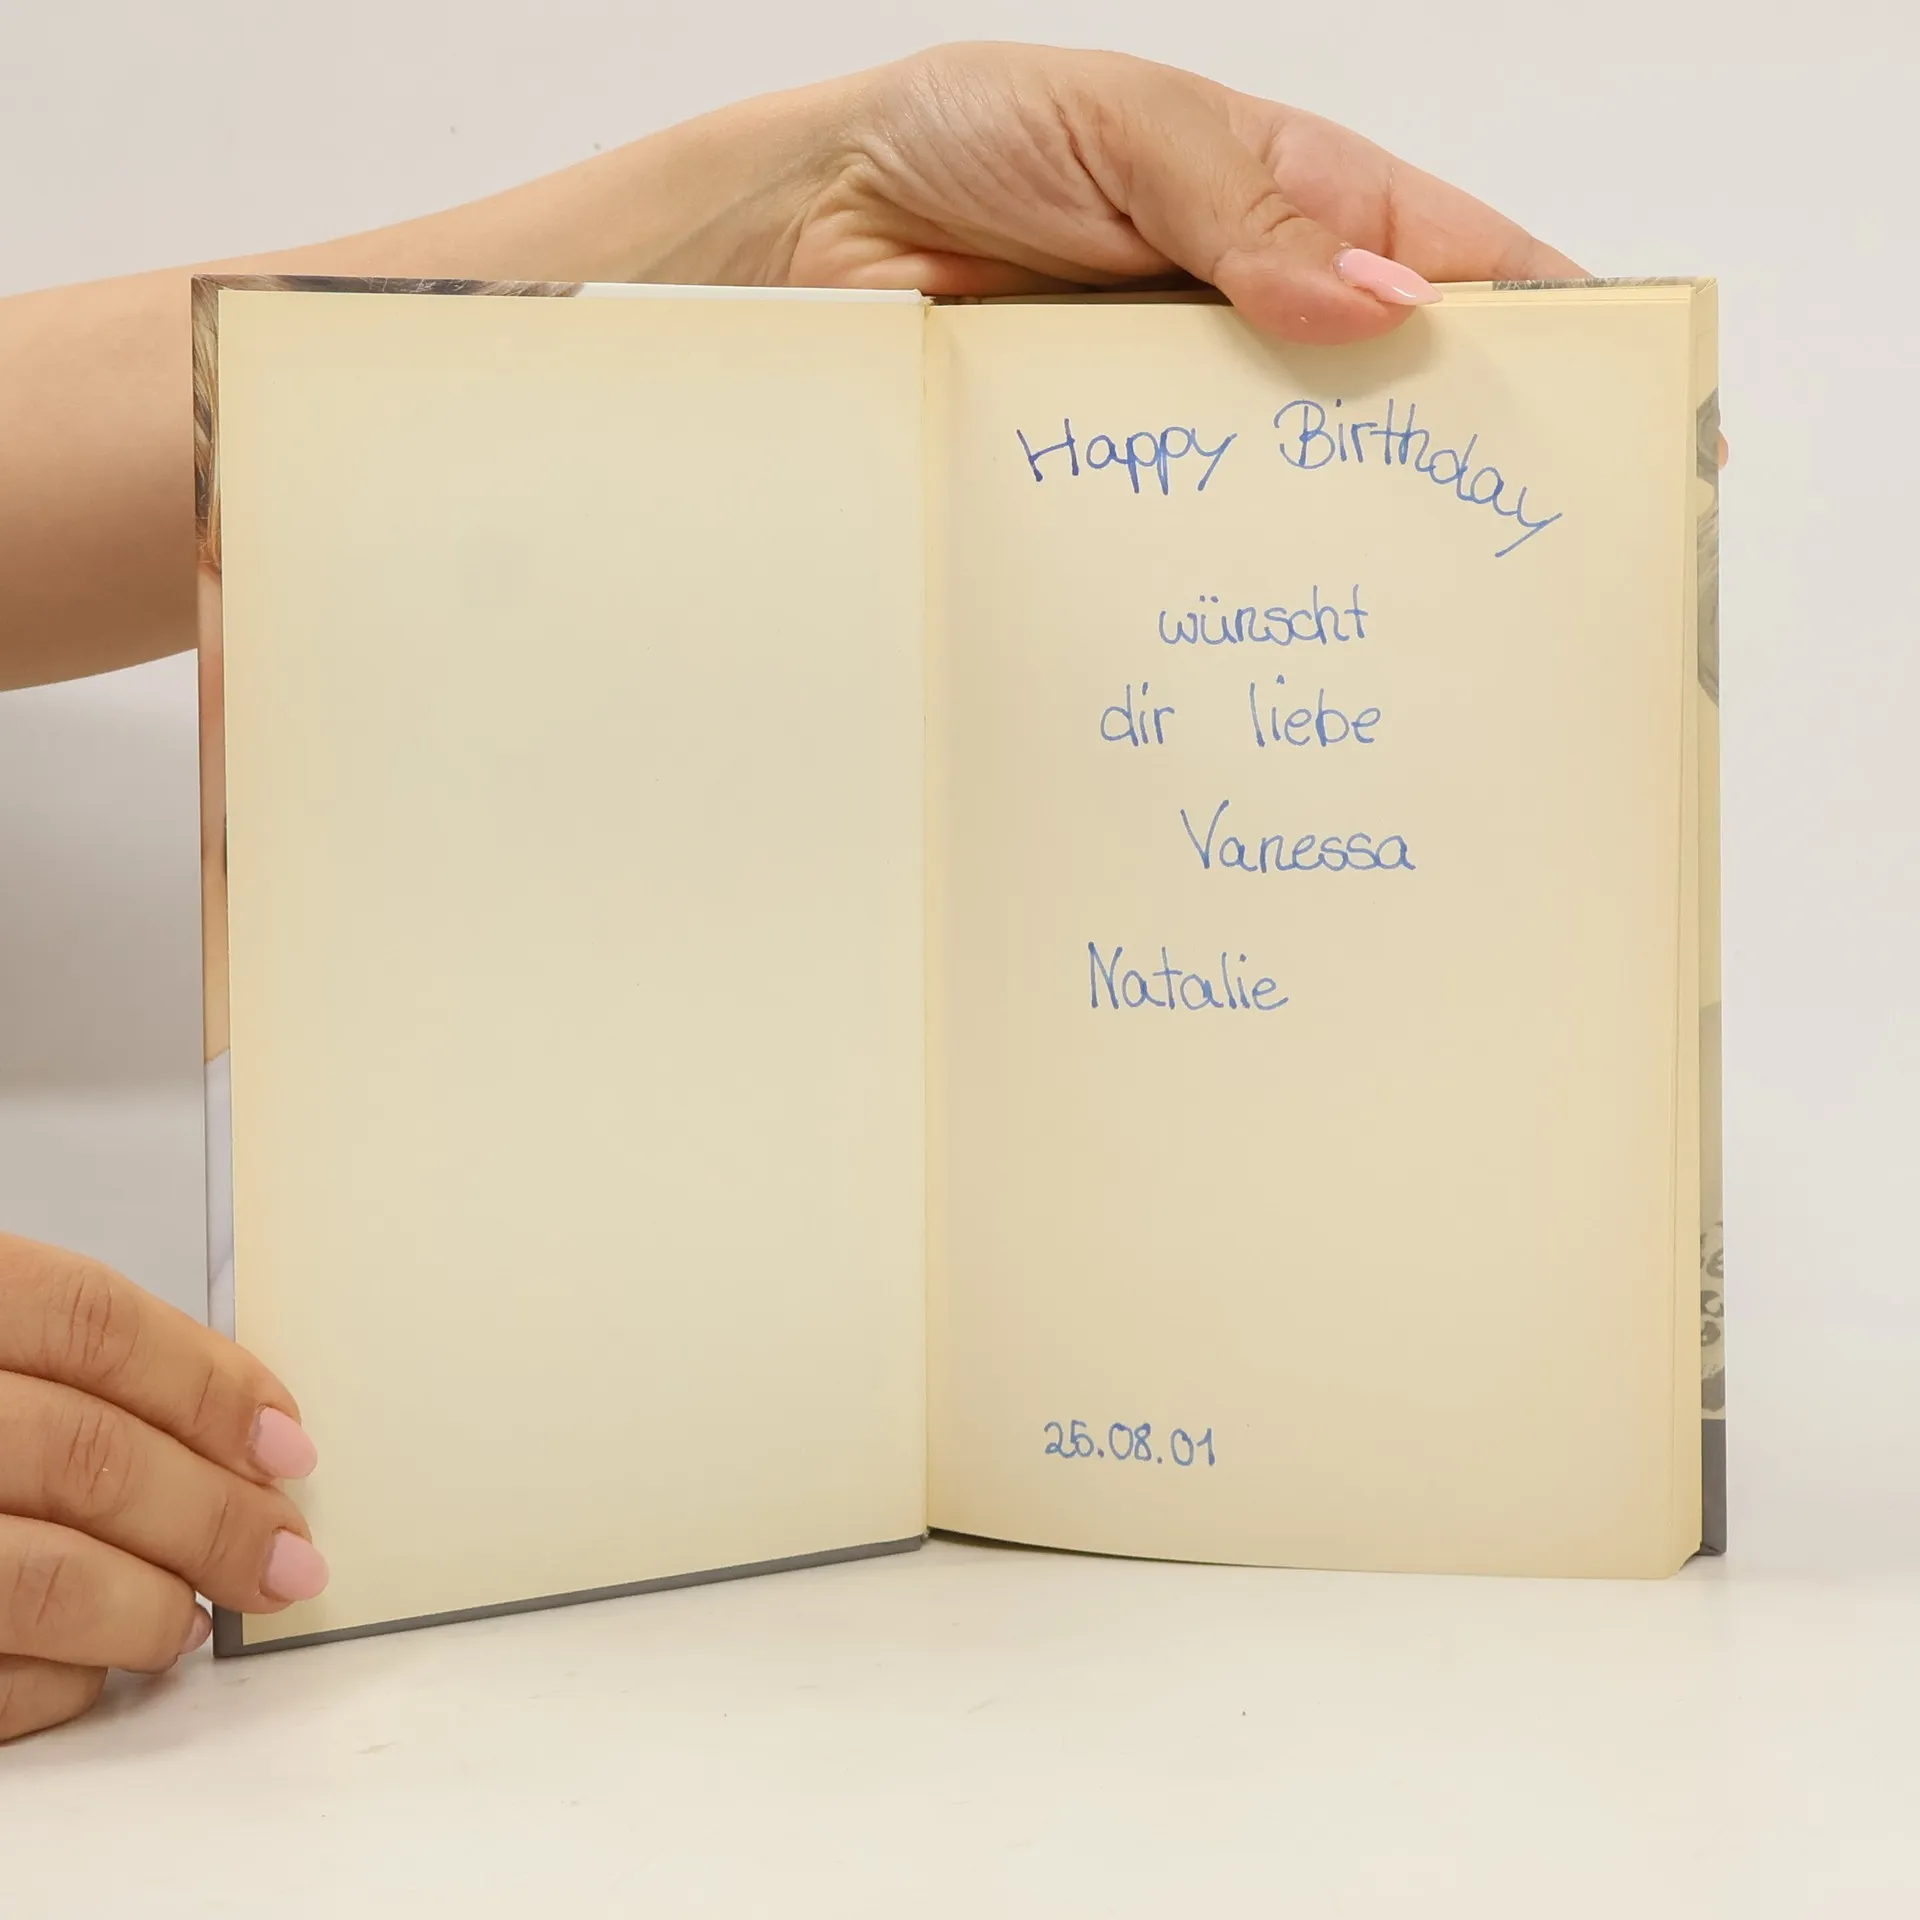 Happy Birthday
wünscht
dir liebe
Vanessa
Natalie
25.08.01